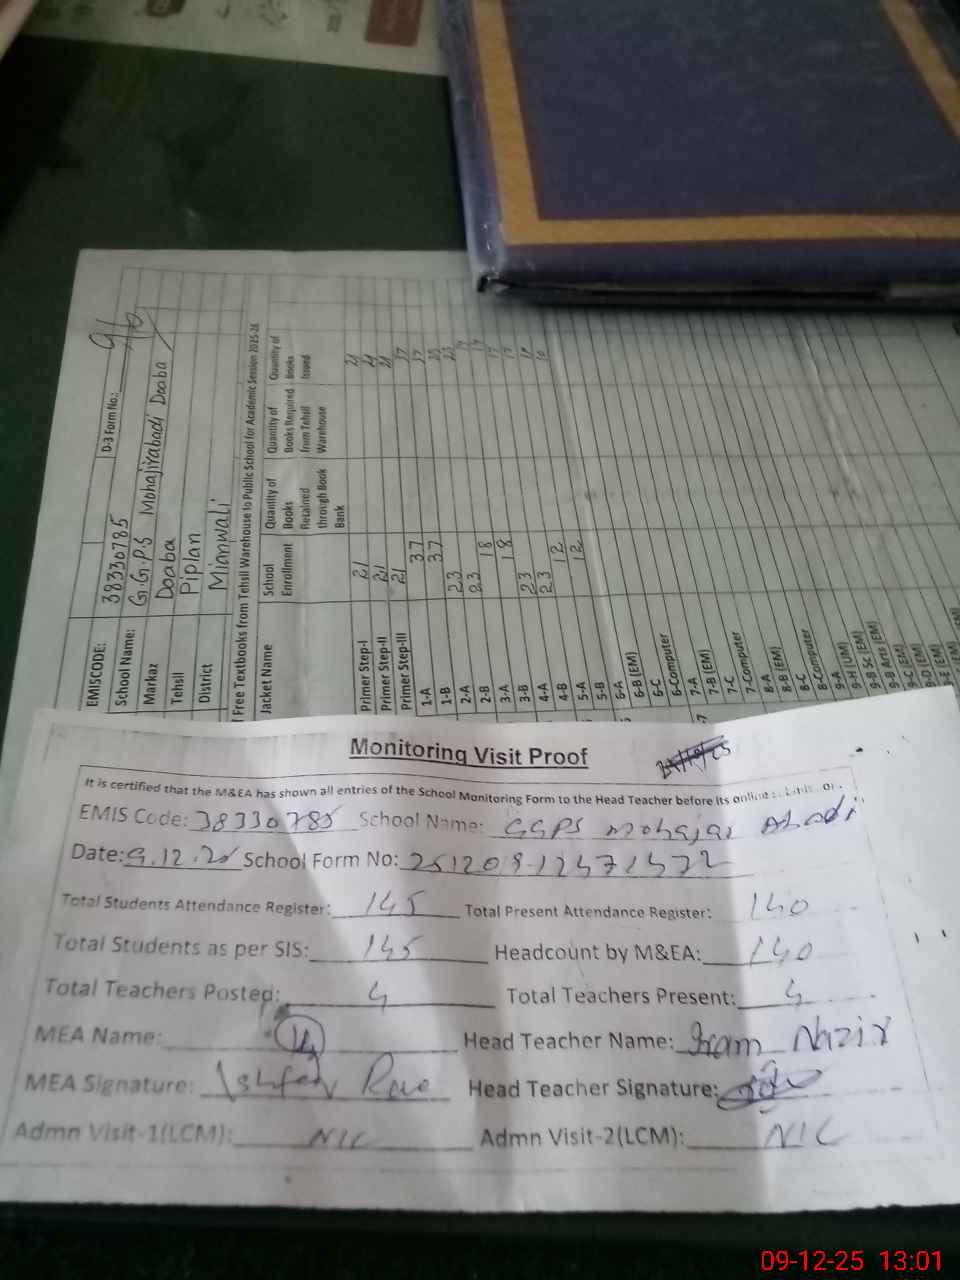 EMISCODE: 38330785 D-3 Form No.: 96
School Name: G.G.P.S Mohajirabadi Doaba
Markaz Doaba
Tehsil Piplan
District Mianwali
Free Textbooks from Tehsil Warehouse to Public School for Academic Session 2025-26
Jacket Name School Enrollment Quantity of Books Retained through Book Bank Quantity of Books Required from Tehsil Warehouse Quantity of Books Issued
Primer Step-I 21
Primer Step-II 21
Primer Step-III 21
1-A 37
1-B 37
2-A 23
2-B 23
3-A 18
3-B 18
4-A 23
4-B 23
5-A 12
5-B 12
6-A
6-B (EM)
6-C
6-Computer
7-A
7-B (EM)
7-C
7-Computer
8-A
8-B (EM)
8-C
8-Computer
9-A
9-H (UM)
9-B Sc (EM)
9-B Arts (EM)
9-C (EM)
9-D (EM)
Monitoring Visit Proof
It is certified that the M&EA has shown all entries of the School Monitoring Form to the Head Teacher before its online
EMIS Code: 38330785 School Name: GGPS Mohajar Abadi
Date: 9.12.25 School Form No:
Total Students Attendance Register: 145 Total Present Attendance Register: 140
Total Students as per SIS: 145 Headcount by M&EA: 140
Total Teachers Posted: 4 Total Teachers Present: 4
MEA Name: Head Teacher Name: Iram Nazir
MEA Signature: Head Teacher Signature:
Admn Visit-1(LCM): NIL Admn Visit-2(LCM): NIL
09-12-25 13:01